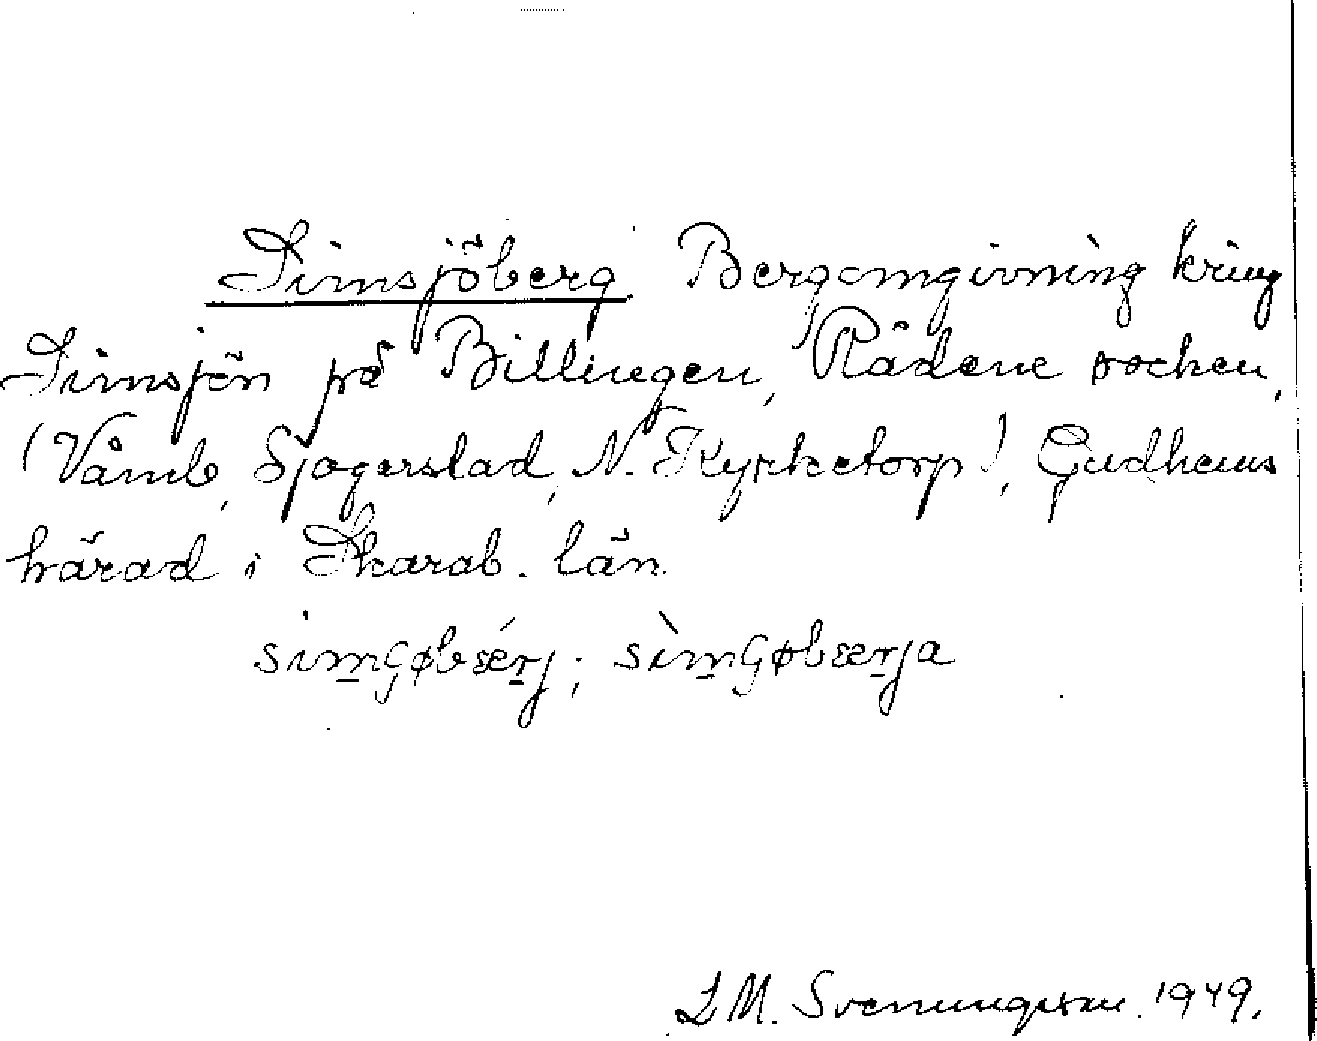 Simsjöberg Bergomgivning kring
Simsjön på Billingen, Rådene socken,
(Våmb, Sjogerstad, N. Kyrketorp), Gudhems
härad i Skarab. län.
simGøbærj; sìmGøbærja
L M. Svenungsson. 1949.